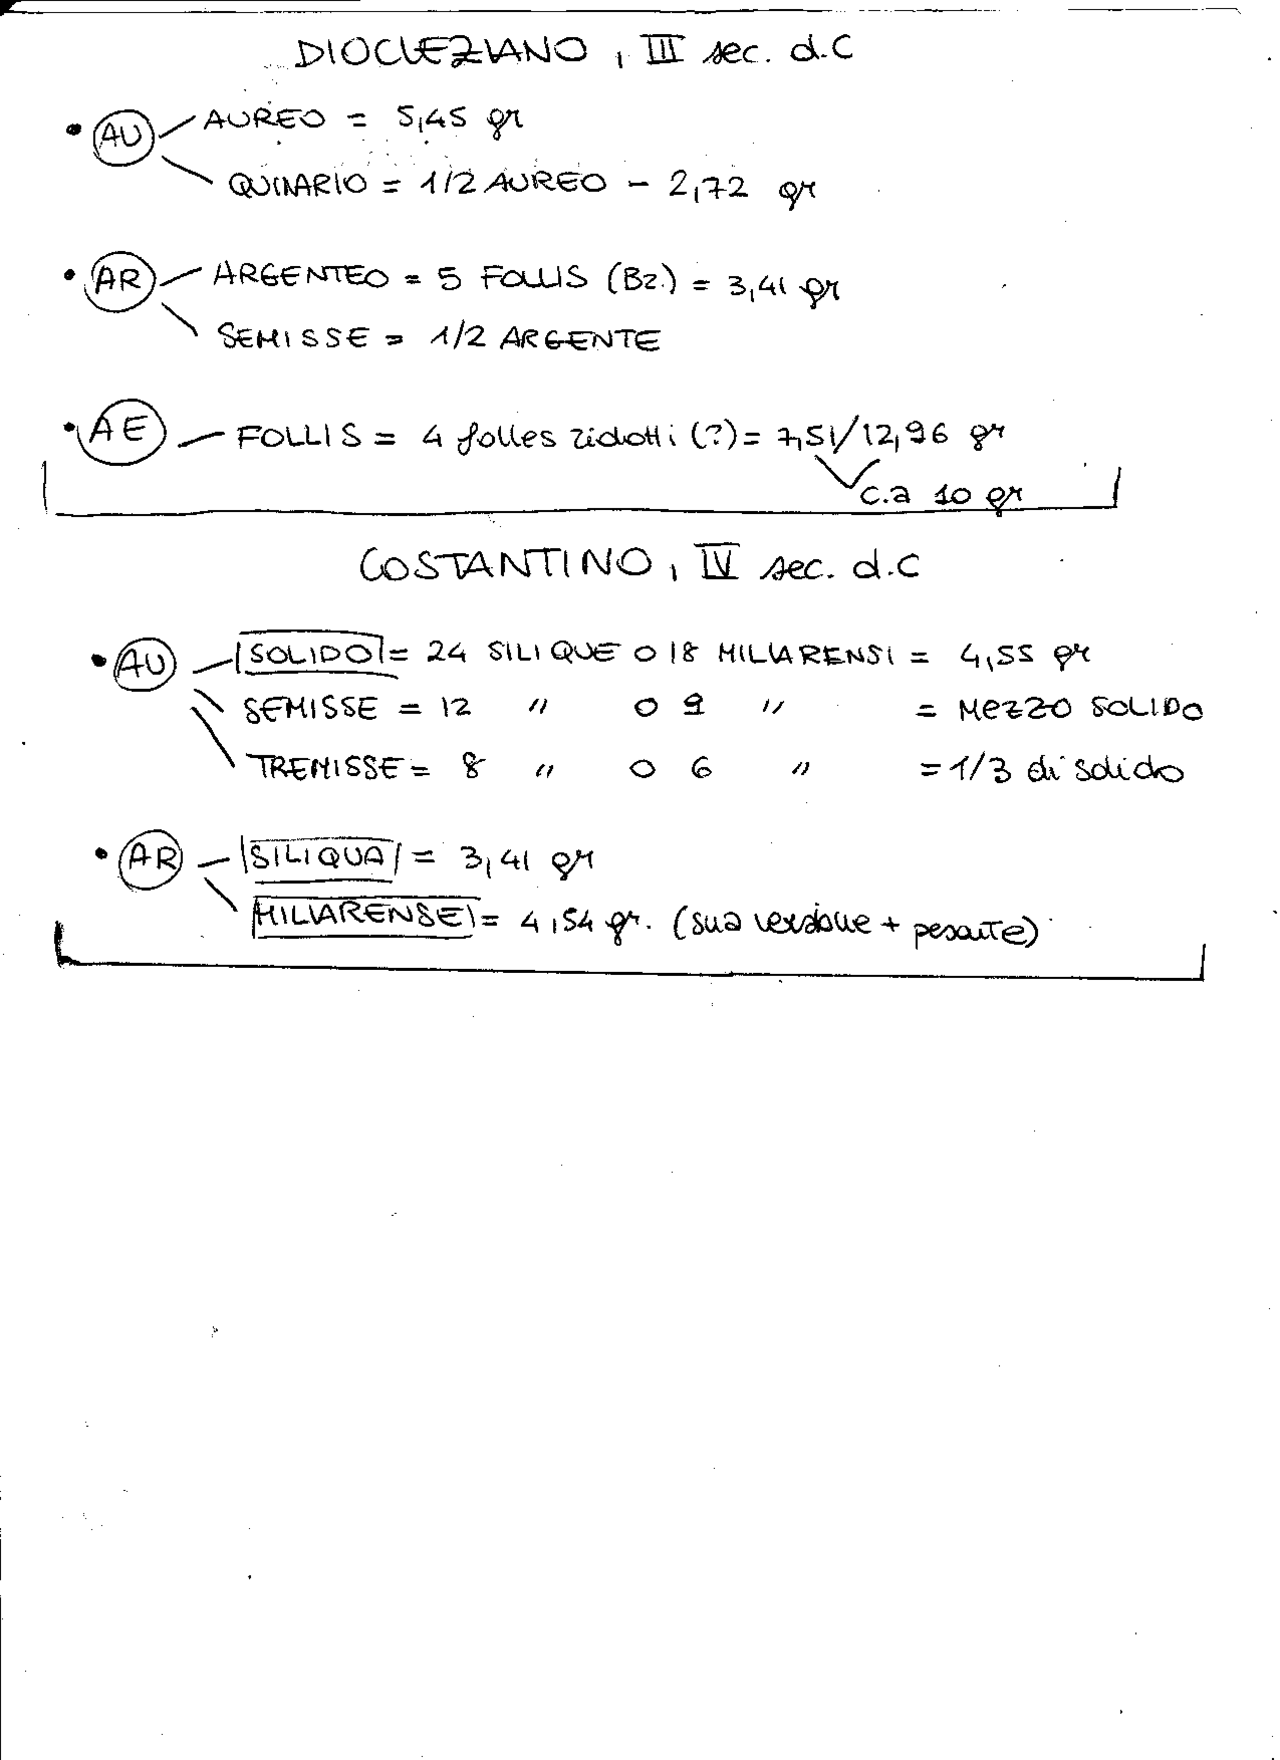 DIOCLEZIANO, III sec. d.C
• AU AUREO = 5,45 gr
QUINARIO = 1/2 AUREO - 2,72 gr
• AR ARGENTEO = 5 FOLLIS (BZ.) = 3,41 gr
SEMISSE = 1/2 ARGENTE
• AE FOLLIS = 4 folles ridotti (?) = 7,51/12,96 gr
c.a 10 gr
COSTANTINO, IV sec. d.C
• AU SOLIDO = 24 SILIQUE O 18 MILIARENSI = 4,55 gr
SEMISSE = 12 " O 9 " = MEZZO SOLIDO
TREMISSE = 8 " O 6 " = 1/3 di solido
• AR SILIQUA = 3,41 gr
MILIARENSE = 4,54 gr. (sua versione + pesante)